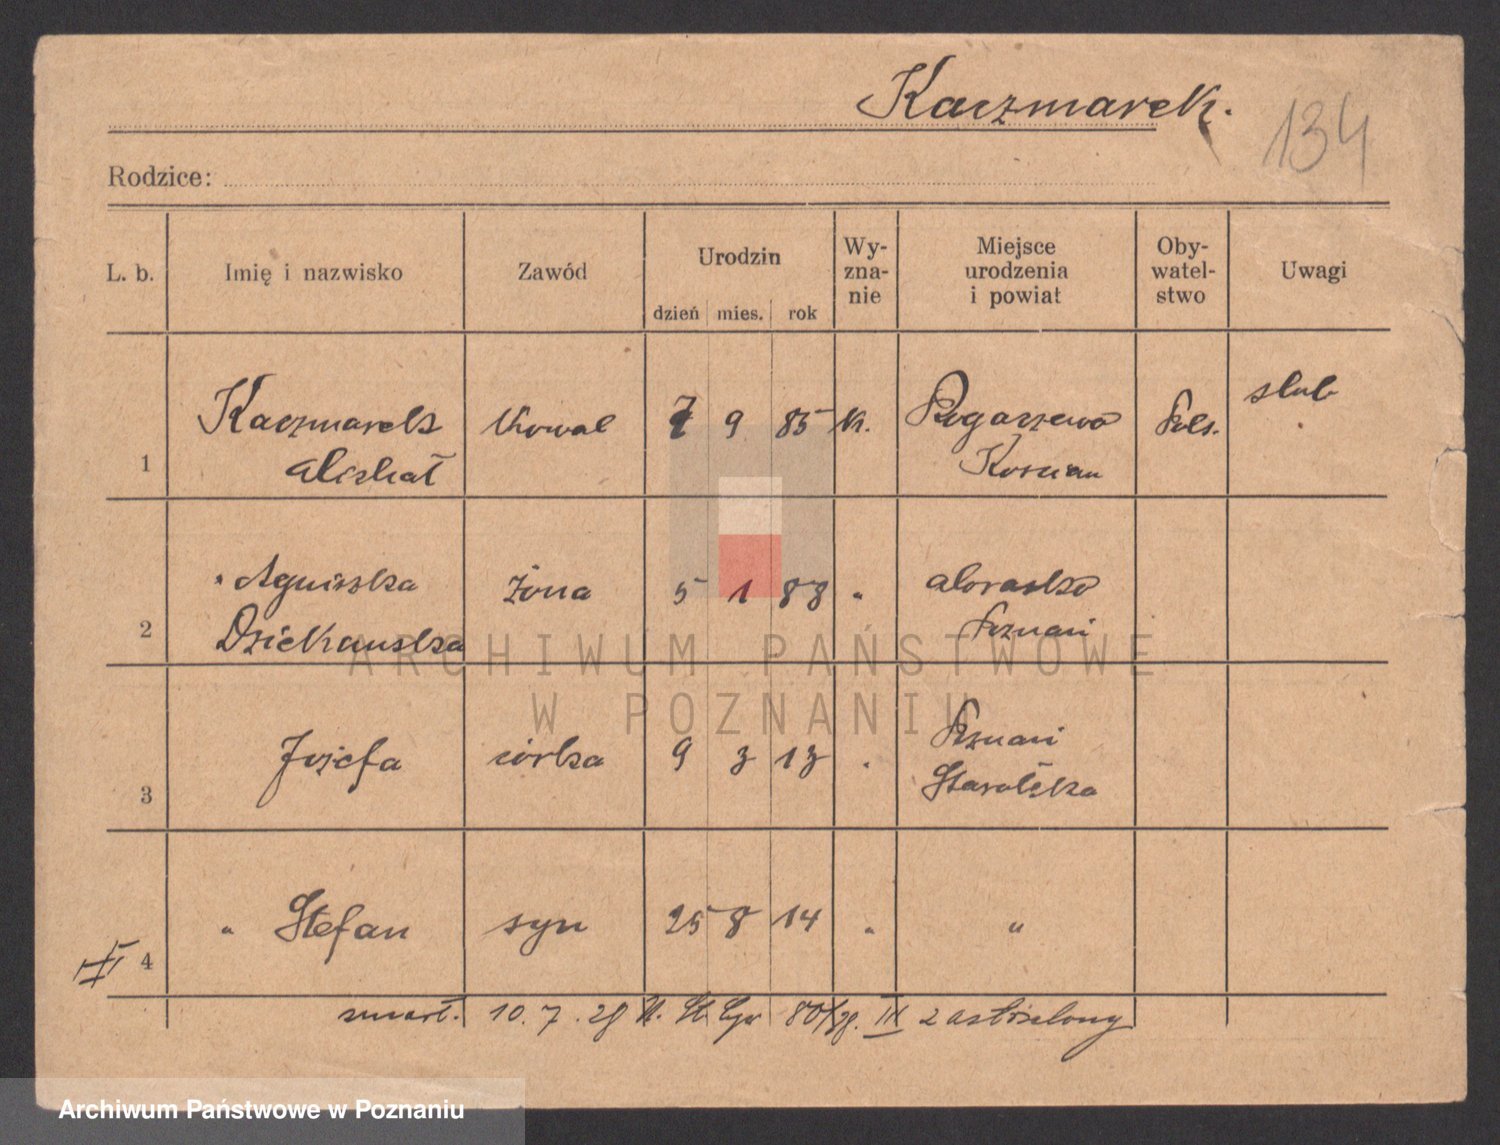 Kaczmarek.
134
Rodzice:
L. b. Imię i nazwisko Zawód Urodzin dzień mies. rok Wy-zna-nie Miejsce urodzenia i powiat Oby-watel-stwo Uwagi
1 Kaczmarek Michał Kowal 7 9 85 K. Rogaczewo Kościan Pols. slub
2 " Agnieszka Dziekanska żona 5 1 88 " Morasko Poznań
3 Józefa córka 9 3 13 " Poznań Starołęka
4 " Stefan syn 25 8 14 " "
zmarł. 10.7.28 U. St. 80/28. III zastrzelony
ARCHIWUM PAŃSTWOWE
W POZNANIU
Archiwum Państwowe w Poznaniu